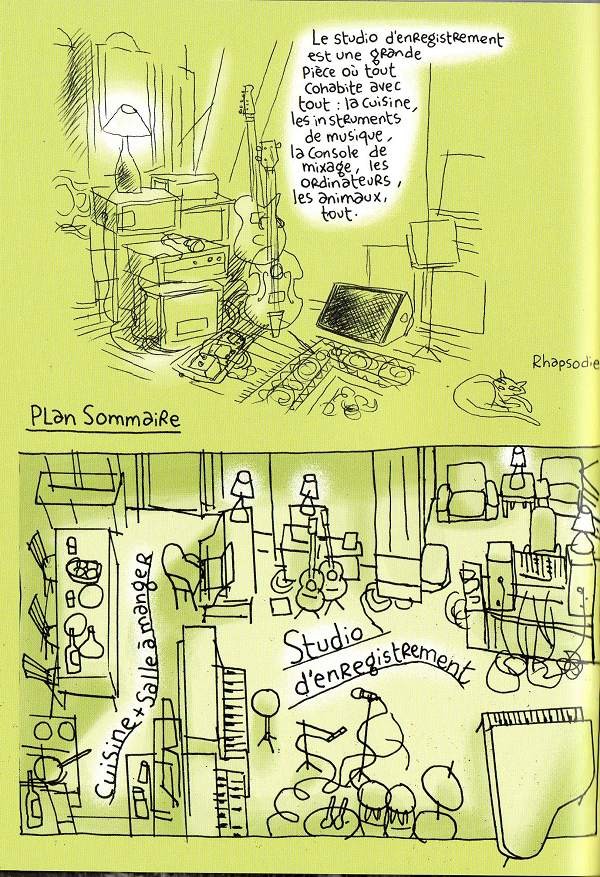 Le studio d'enregistrement
est une grande
pièce où tout
cohabite avec
tout : la cuisine,
les instruments
de musique,
la console de
mixage, les
ordinateurs,
les animaux,
tout.
Rhapsodie
Plan Sommaire
Cuisine + Salle à manger
Studio
d'enregistrement